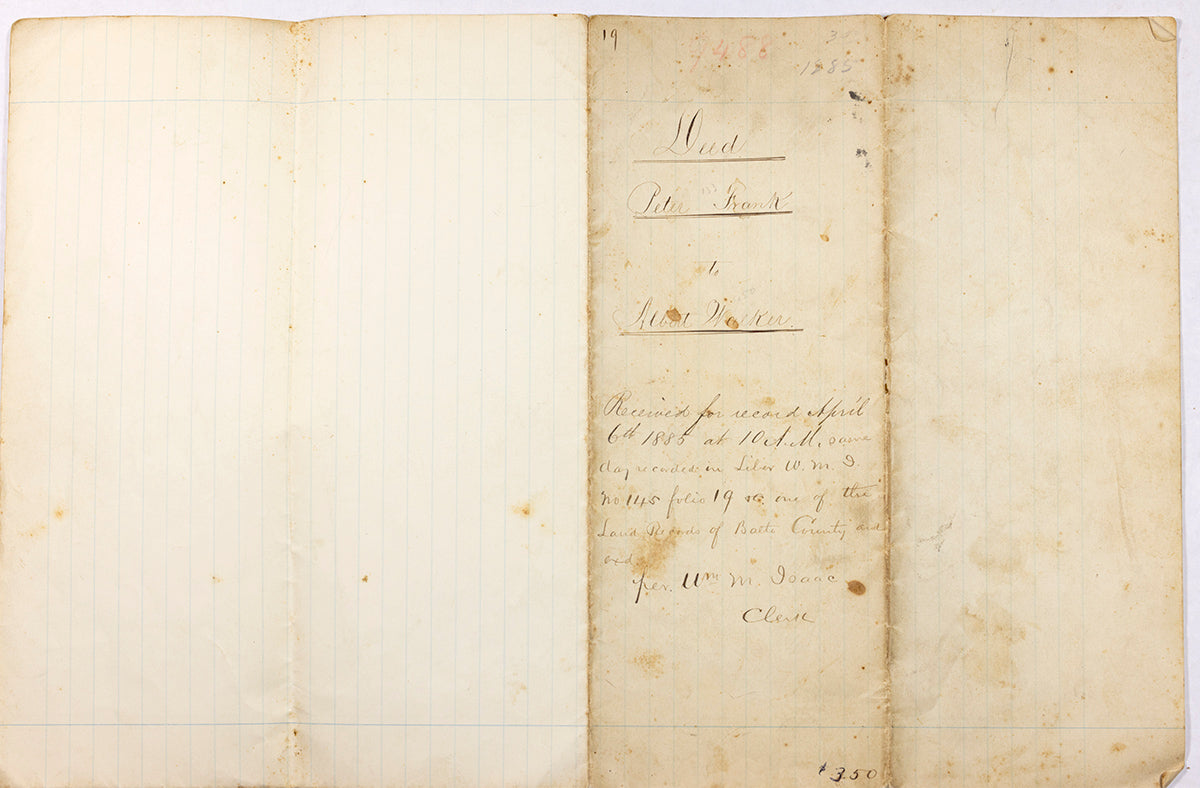 19
7488
1885
Deed
Peter Frank
to
Albert Walker.
Received for record April
6th 1885 at 10 A.M. same
day recorded in Liber W. M. I.
No 145 folio 19 &c one of the
Land Records of Balto County and
exd.
per. Wm M. Isaac
Clerk
$3.50